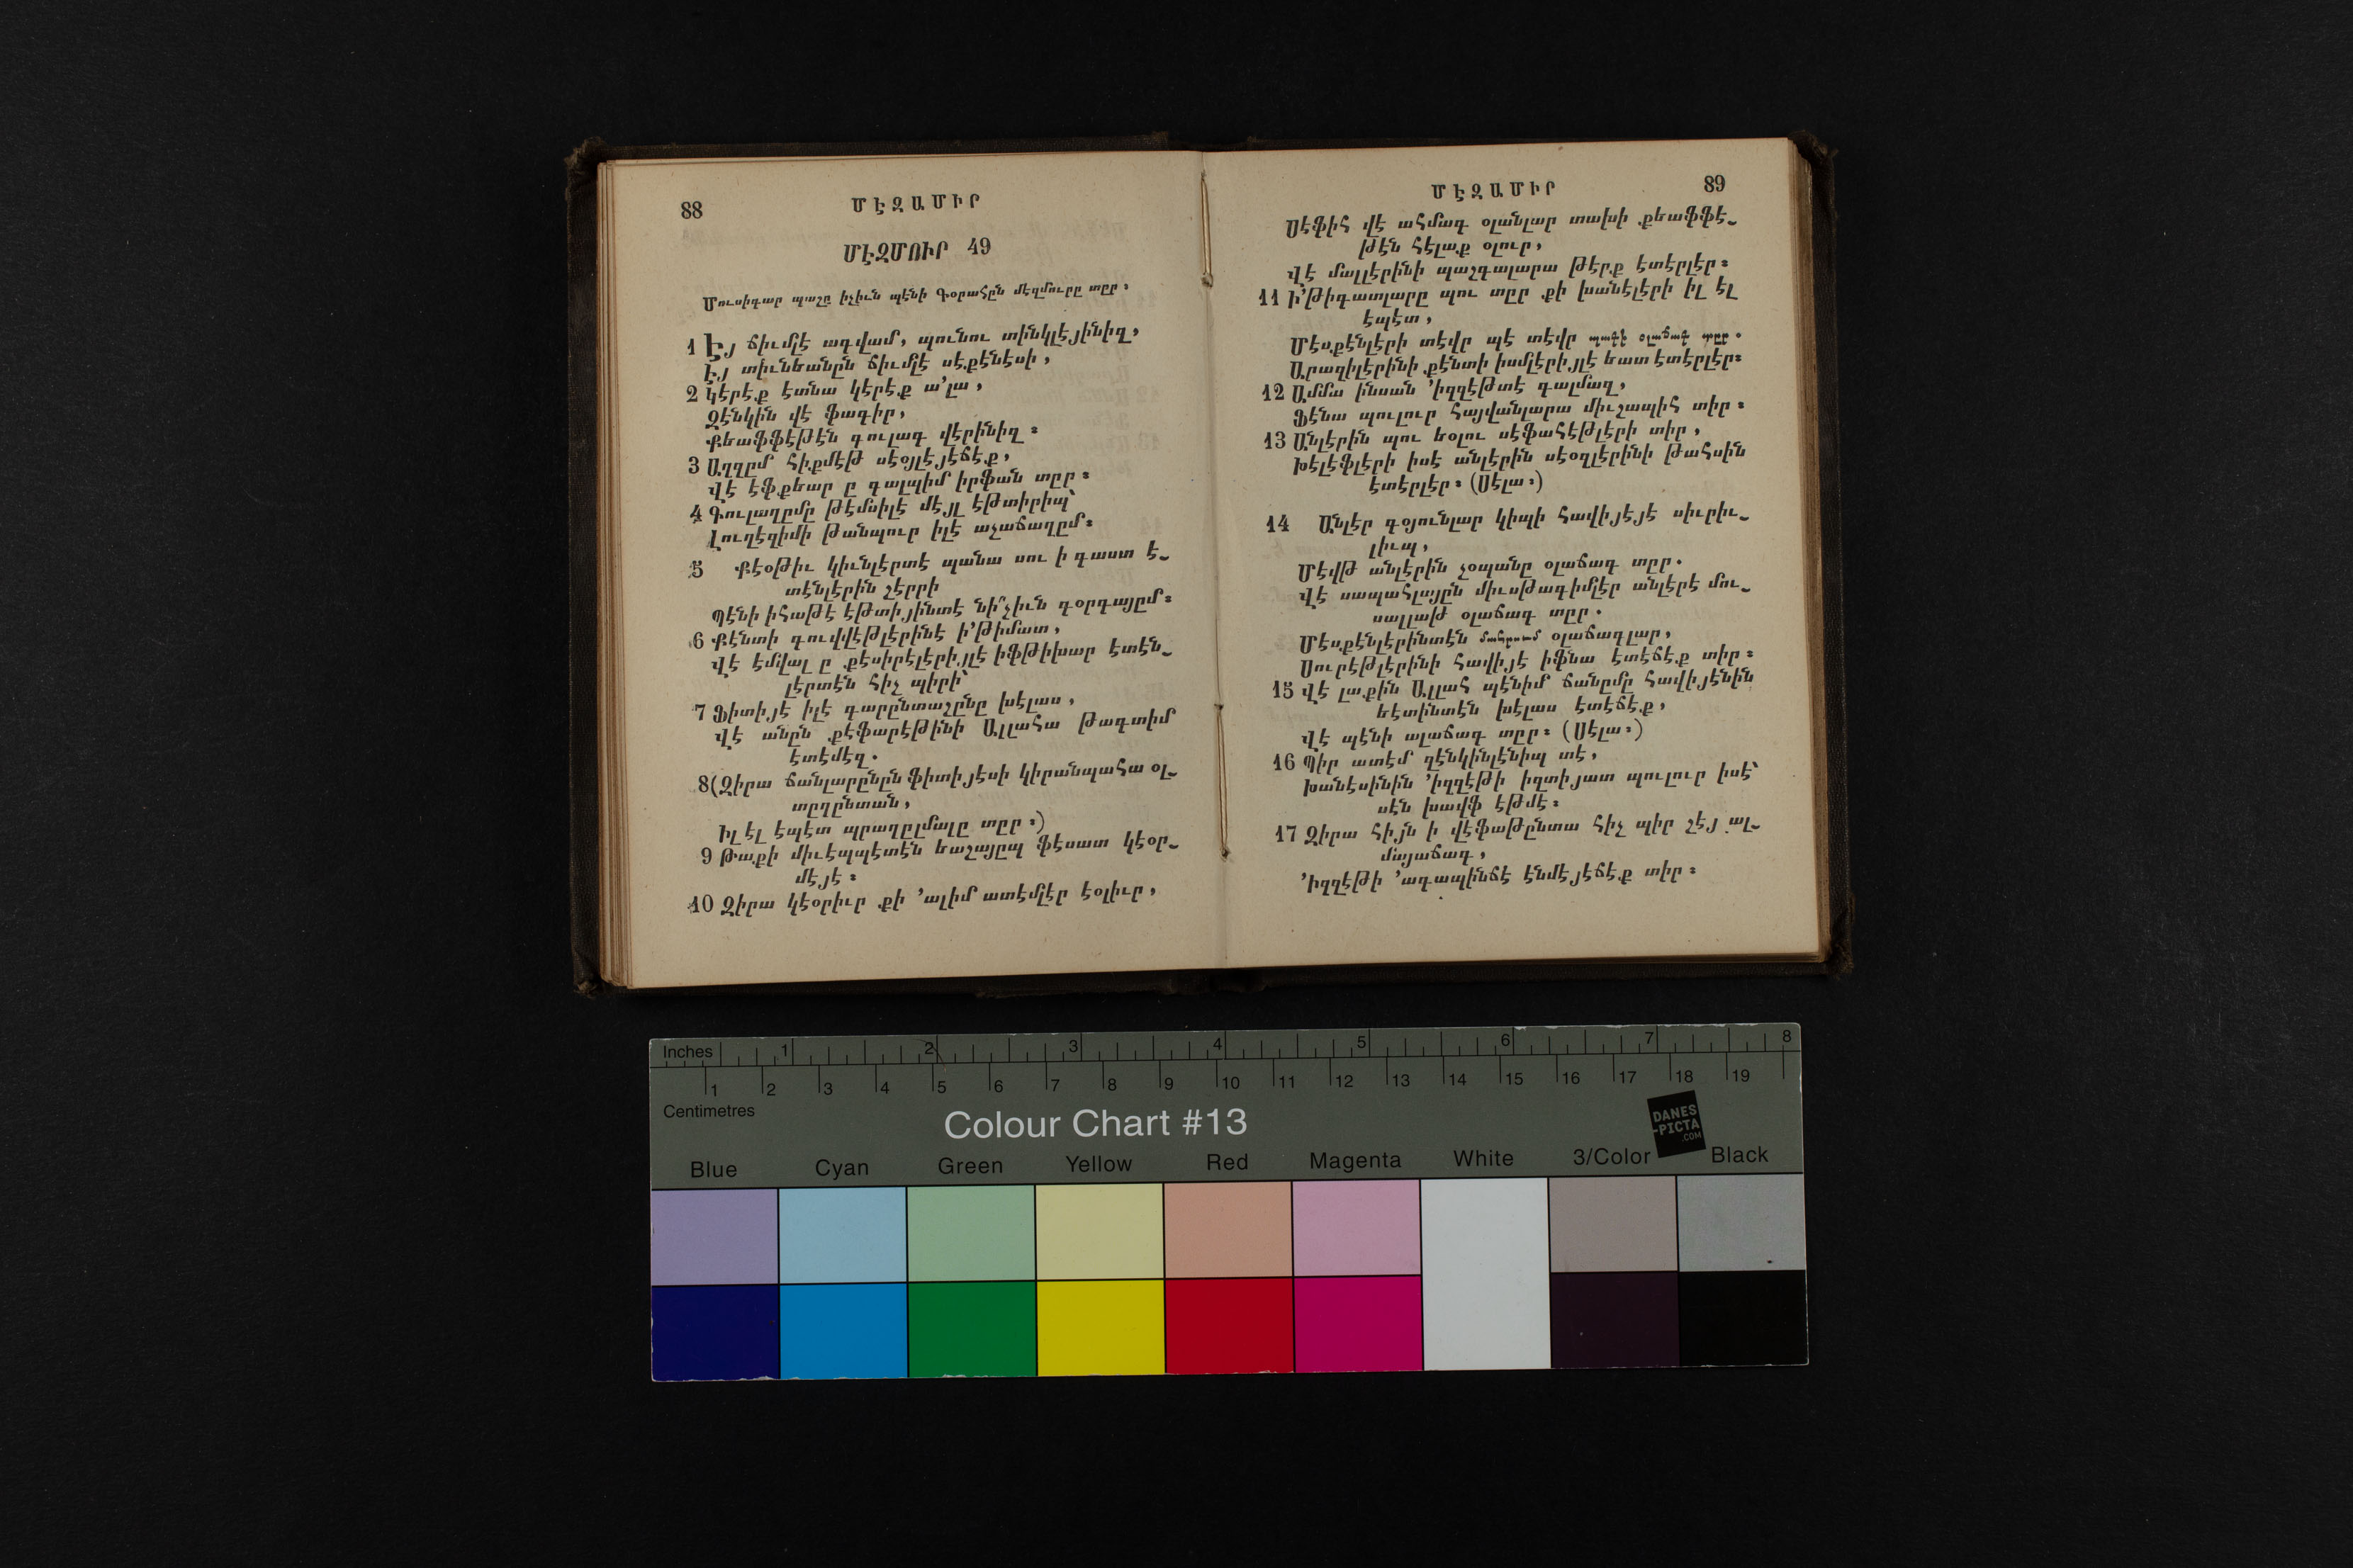 88 ՄԷԶԱՄԻՐ
ՄԷԶՄՈՒՐ 49
Մուսիգար պաշը իչիւն պէնի Գօրահըն մէզմուրը տըր ։
1 Էյ ճիւմլէ ագվամ, պունու տինկլէյինիզ,
Էյ տիւնեանըն ճիւմլէ սէքէնէսի,
2 Կէրէք էտնա կէրէք ա՚լա,
Զէնկին վէ ֆագիր,
Քեաֆֆէթէն գուլագ վէրինիզ ։
3 Աղզըմ հիքմէթ սէօյլէյէճէք,
Վէ էֆքեար ը գալպիմ իրֆան տըր ։
4 Գուլաղըմը թէմսիլէ մէյլ էթտիրիպ՝
Լուղէզիմի թանպուր իլէ աչաճաղըմ։
5 Քէօթիւ կիւնլէրտէ պանա սու ի գաստ է֊
տէնլէրին շէրրի
Պէնի իհաթէ էթտիյինտէ նի՞չիւն գօրգայըմ։
6 Քէնտի գուվվէթլէրինէ ի՚թիմատ,
Վէ էմվալ ը քէսիրէլէրիյլէ իֆթիխար էտէն֊
լէրտէն հիչ պիրի՝
7 Ֆիտիյէ իլէ գարընտաշընը խէլաս,
Վէ անըն քէֆարէթինի Ալլահա թագտիմ
էտէմէզ.
8 (Զիրա ճանլարընըն ֆիտիյէսի կիրանպահա օլ֊
տըղընտան,
Իլ էլ էպէտ պրաղըլմալը տըր ։)
9 Թաքի միւէպպէտէն եաշայըպ ֆէսատ կէօր֊
մէյէ ։
10 Զիրա կէօրիւր քի ՚ալիմ ատէմլէր էօլիւր,
ՄԷԶԱՄԻՐ 89
Սէֆիհ վէ ահմագ օլանլար տախի քեաֆֆէ֊
թէն հէլաք օլուր,
Վէ մալլէրինի պաշգալարա թէրք էտէրլէր ։
11 Ի՚թիգատլարը պու տըր քի խանէլէրի իլ էլ
էպէտ,
Մէսքէնլէրի տէվր պէ տէվր պագի օլաճագ տըր.
Արազիլէրինի քէնտի իսմլէրիյլէ եատ էտէրլէր։
12 Ամմա ինսան ՚իզզէթտէ գալմազ,
Ֆէնա պուլուր հայվանլարա միւշապիհ տիր ։
13 Անլէրին պու եօլու սէֆահէթլէրի տիր,
Խէլէֆլէրի իսէ անլէրին սէօզլէրինի թահսին
էտէրլէր ։ (Սէլա ։)
14 Անլէր գօյունլար կիպի հավիյէյէ սիւրիւ֊
լիւպ,
Մէվթ անլէրին չօպանը օլաճագ տըր.
Վէ սապահլայըն միւսթագիմլէր անլէրէ մու֊
սալլաթ օլաճագ տըր.
Մէսքէնլէրինտէն մահրում օլաճագլար,
Սուրէթլէրինի հավիյէ իֆնա էտէճէք տիր ։
15 Վէ լաքին Ալլահ պէնիմ ճանըմը հավիյէնին
եէտինտէն խէլաս էտէճէք,
Վէ պէնի ալաճագ տըր ։ (Սէլա ։)
16 Պիր ատէմ զէնկինլէնիպ տէ,
Խանէսինին ՚իզզէթի իզտիյատ պուլուր իսէ՝
սէն խավֆ էթմէ ։
17 Զիրա հիյն ի վէֆաթընտա հիչ պիր շէյ ալ֊
մայաճագ,
՚Իզզէթի ՚ագապինճէ էնմէյէճէք տիր ։
Inches 1 2 3 4 5 6 7 8
1 2 3 4 5 6 7 8 9 10 11 12 13 14 15 16 17 18 19
Centimetres
Colour Chart #13
DANES
-PICTA
.COM
Blue Cyan Green Yellow Red Magenta White 3/Color Black